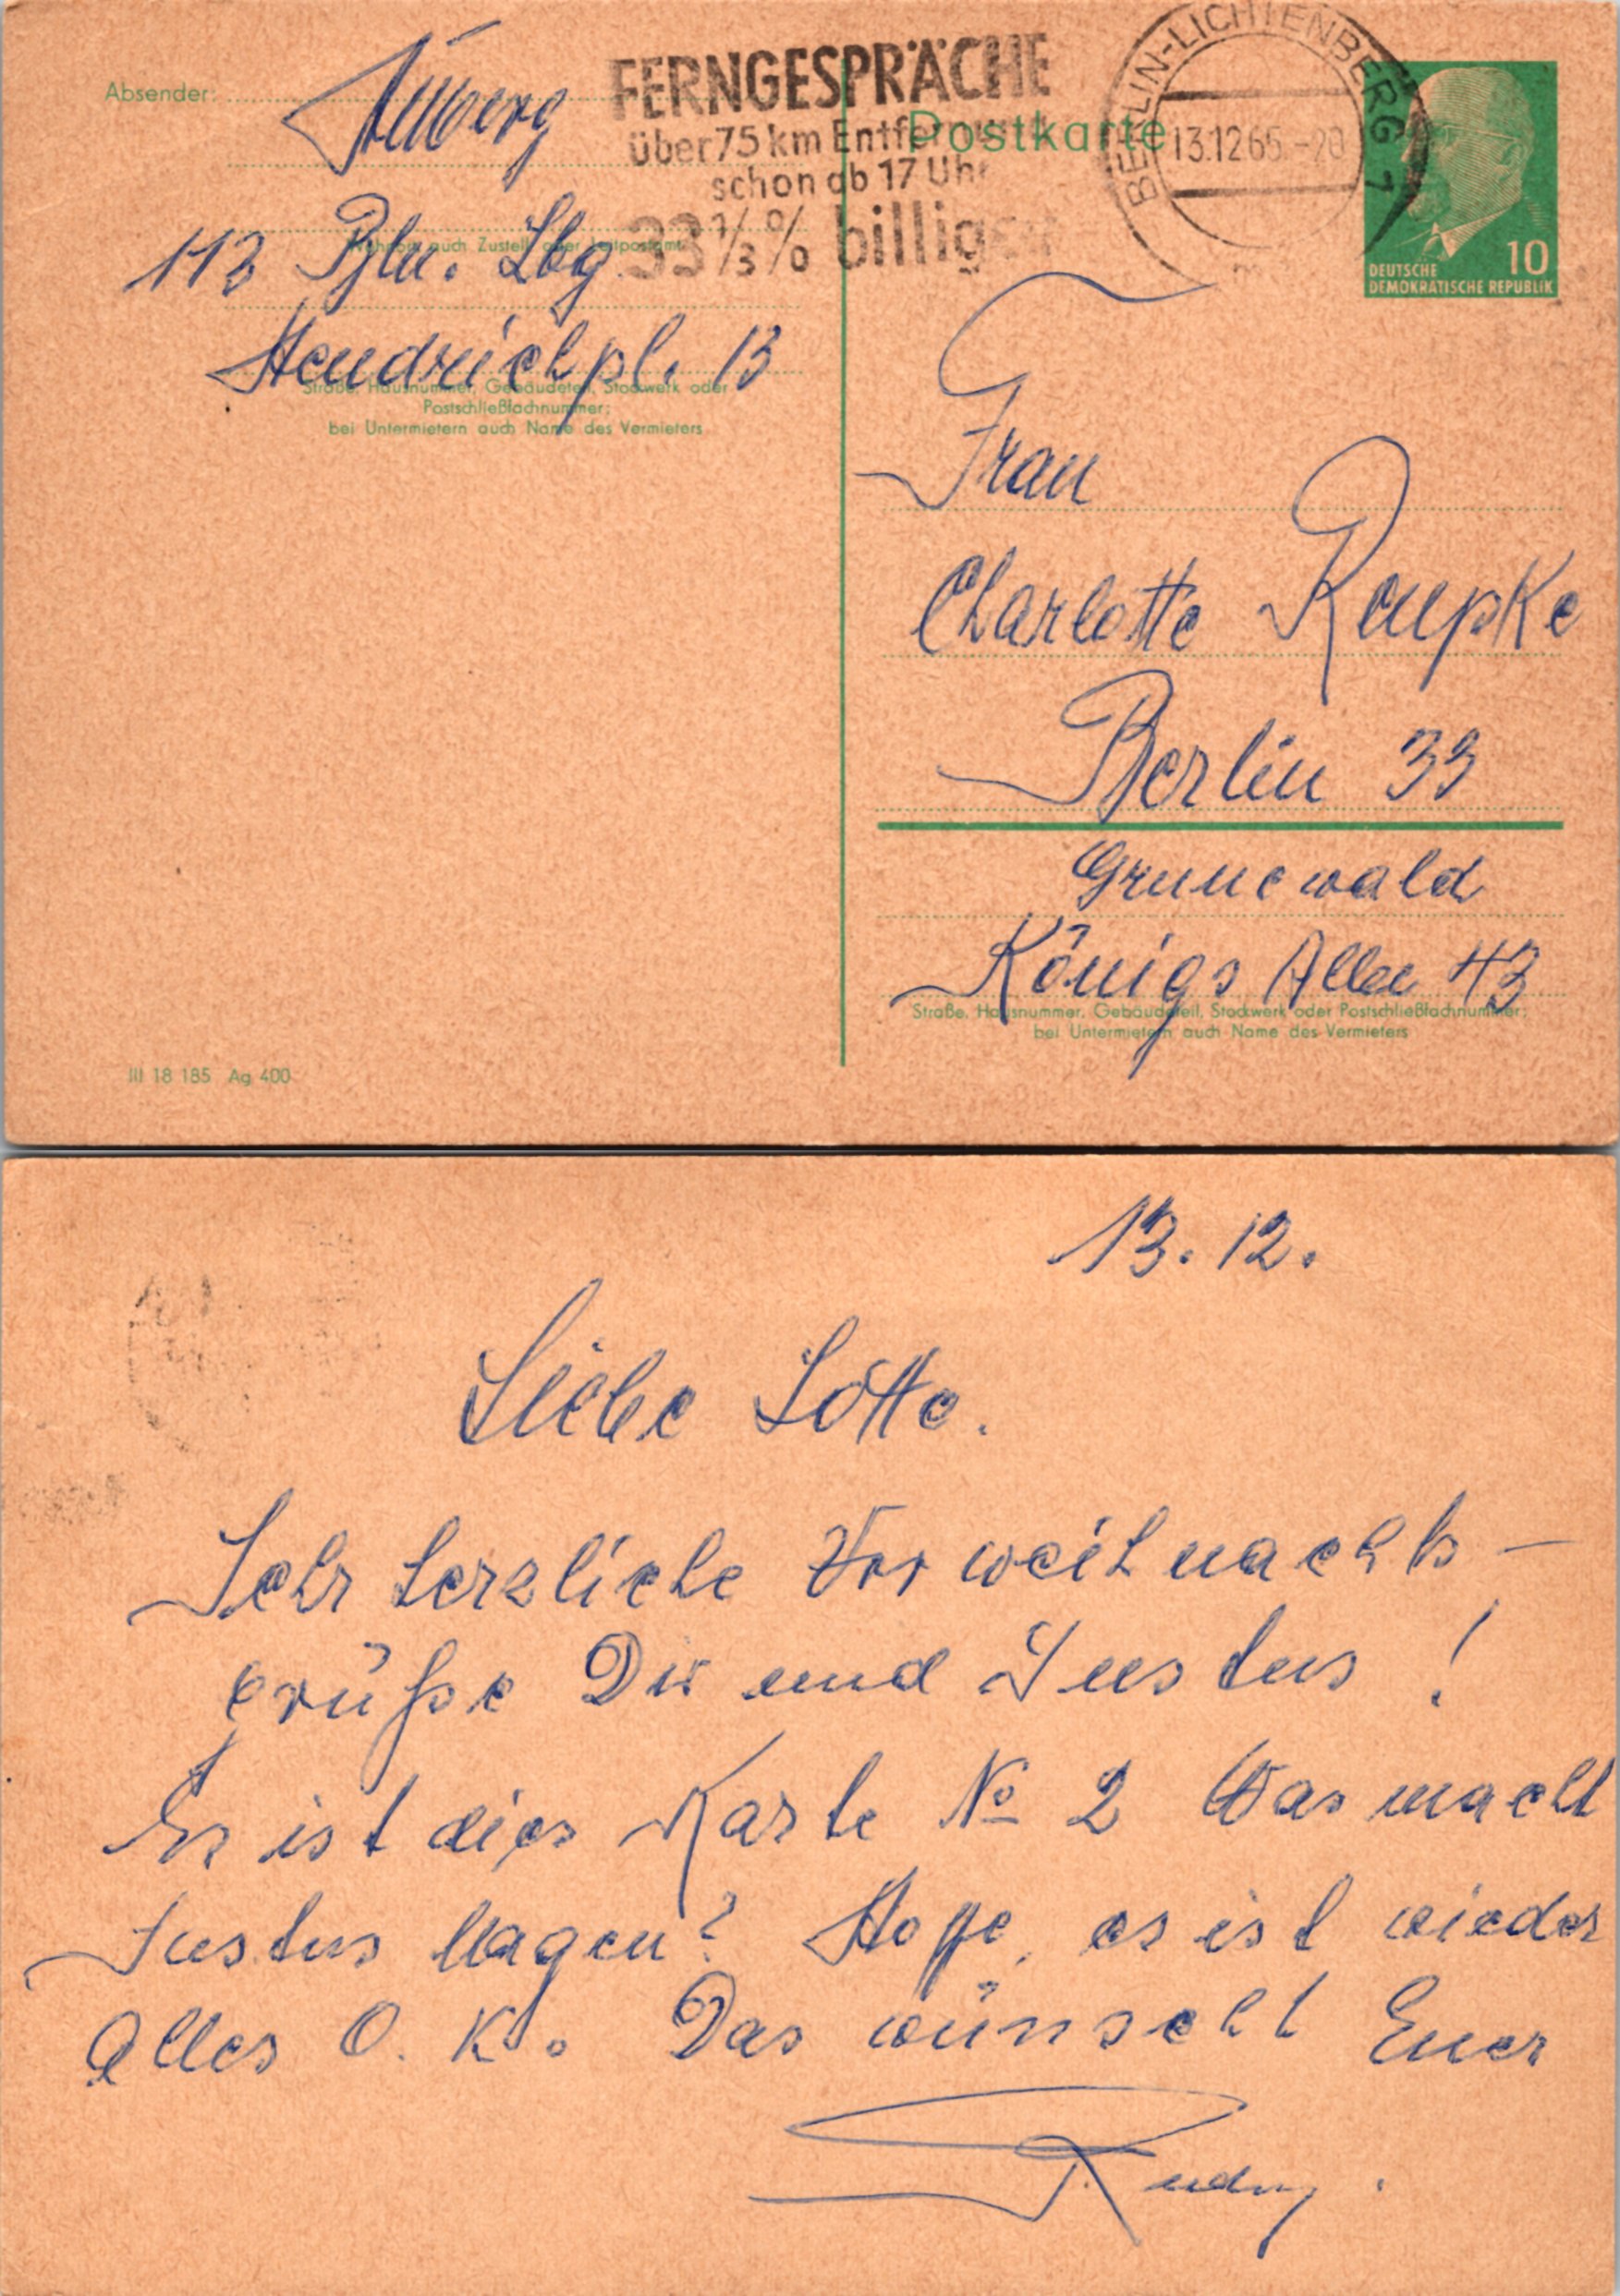 Absender:
FERNGESPRÄCHE
über 75 km Entfernung
schon ab 17 Uhr
33 1/3 % billiger
BERLIN-LICHTENBERG 1
13.12.65.-20
Postkarte
10
DEUTSCHE
DEMOKRATISCHE REPUBLIK
113 Bln. Lbg
Wohnort, auch Zustell- oder Leitpostamt
Hendrichpl. 13
Straße, Hausnummer, Gebäudeteil, Stockwerk oder
Postschließfachnummer;
bei Untermietern auch Name des Vermieters
III 18 185 Ag 400
Frau
Charlotte Roupke
Berlin 33
Grunewald
Königs Allee 43
Straße, Hausnummer, Gebäudeteil, Stockwerk oder Postschließfachnummer;
bei Untermietern auch Name des Vermieters
13. 12.
Liebe Lotte.
Sehr herzliche Vorweihnachts-
grüße Dir und Justus!
Es ist dies Karte No 2 Was macht
Justus Magen? Hoffe, es ist wieder
Alles O. K. Das wünscht Euer